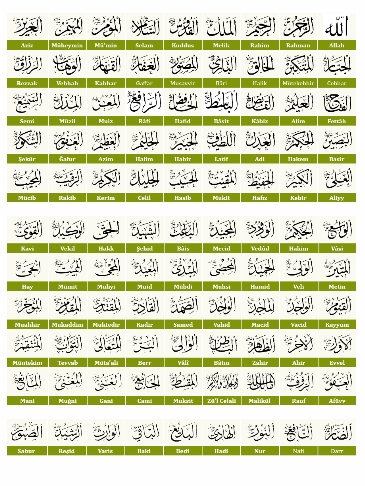 الله الرحمن الرحيم الملك القدوس السلام المؤمن المهيمن العزيز
Aziz Müheymin Mü'min Selam Kuddus Melik Rahim Rahman Allah
الجبار المتكبر الخالق البارئ المصور الغفار القهار الوهاب الرزاق
Rezzak Vehhab Kahhar Gaffar Musavvir Bâri Halik Mütekebbir Cebbar
الفتاح العليم القابض الباسط الخافض الرافع المعز المذل السميع
Semi Müzil Muiz Râfi Hafid Bâsit Kâbiz Alim Fettâh
البصير الحكم العدل اللطيف الخبير الحليم العظيم الغفور الشكور
Şekûr Ğafur Azim Halim Habir Latif Adl Hakem Basir
العلي الكبير الحفيظ المقيت الحسيب الجليل الكريم الرقيب المجيب
Mücib Rakib Kerim Celil Hasib Mukit Hafız Kebir Aliyy
الواسع الحكيم الودود المجيد الباعث الشهيد الحق الوكيل القوي
Kavi Vekil Hakk Şehid Bâis Mecid Vedûd Hakim Vâsi
المتين الولي الحميد المحصي المبدئ المعيد المحيي المميت الحي
Hay Mümit Muhyi Muid Mübdi Muhsi Hamid Veli Metin
القيوم الواجد الماجد الواحد الصمد القادر المقتدر المقدم المؤخر
Muahhir Mukaddim Muktedir Kadir Samed Vahid Macid Vacid Kayyum
الأول الآخر الظاهر الباطن الوالي المتعالي البر التواب المنتقم
Müntekim Tevvab Müte'ali Berr Vâli Bâtın Zahir Ahir Evvel
العفو الرؤوف مالك الملك ذو الجلال والإكرام المقسط الجامع الغني المغني المانع
Mani Muğni Gani Cami Muksit Zü'l Celali Malikül Rauf Afüvv
الضار النافع النور الهادي البديع الباقي الوارث الرشيد الصبور
Sabur Reşid Varis Baki Bedi Hadi Nur Nafi Darr